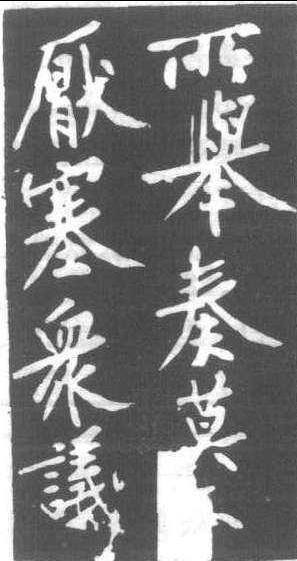 所舉奏莫不
厭塞衆議